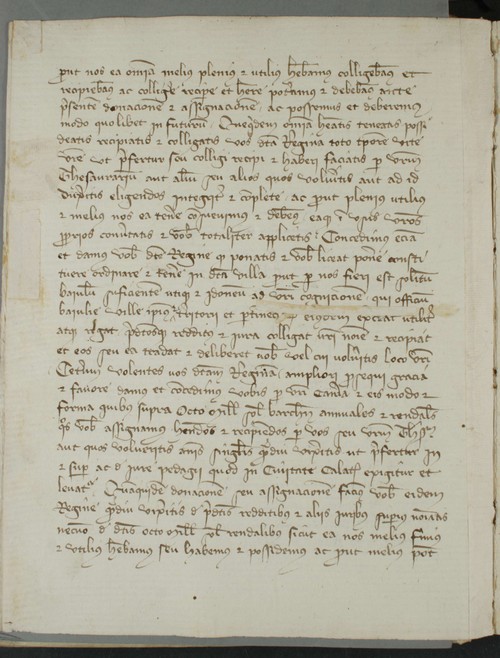 prout nos ea omia melius plenius et utilius hebamus colligebamus et
recipiebamus ac colligere recipere et here poteramus et debebamus ante
presente donacione et assignacione ac possemus et deberemus
modo quolibet in futurum Que quidem omia heatis teneatis possi
deatis recipiatis et colligatis vos dta Regina toto tpore vite
vre ut prefertur seu colligi recipi et haberi faciatis per vrm
Thesaurarium aut alium seu alios quos volueritis aut ad id
duxeritis eligendos integriter et complete ac prout plenius utilius
et melius nos ea tene et debemus eaque in usus vros
proprios convertatis et vob totaliter applicetis Concedimus eciam
et damus vob dte Regine quod ponatis et vob liceat pone consti
tuere ordinare et tene in dta villa prout per nos fieri est solitum
baiulum sufficientem utique et idoneum ad vri cognicionem qui officium
baiulie ville ipius et exerceat utiliter
atque regat redditus et iura colligat vri noie et recipiat
et eos seu ea tradat et deliberet vob vel cui volueritis loco vri
Ceterum volentes vos dtam Reginam ampliori prosequi gracia
et favore damus et concedimus vobis per vri et eis modo et
forma quibus supra Octo mill sol barchn annuales et rendales
quos vob assignamus hendos et recipiendos per vos seu vrum Thes
aut quos volueritis annis singulis quamdiu vixeritis ut prefertur in
et super ac de iure pedagii quod in Civitate Calat exigitur et
levatur Quamquidem donacionem seu assignacionem facimus vob eidem
Regine quamdiu vixeritis de predictis redditibus et aliis iuribus superius noiatis
necnon de dtis octo mill sol rendalibus sicut ea nos melius
et utilius hebamus seu habemus et possidemus ac prout melius pot